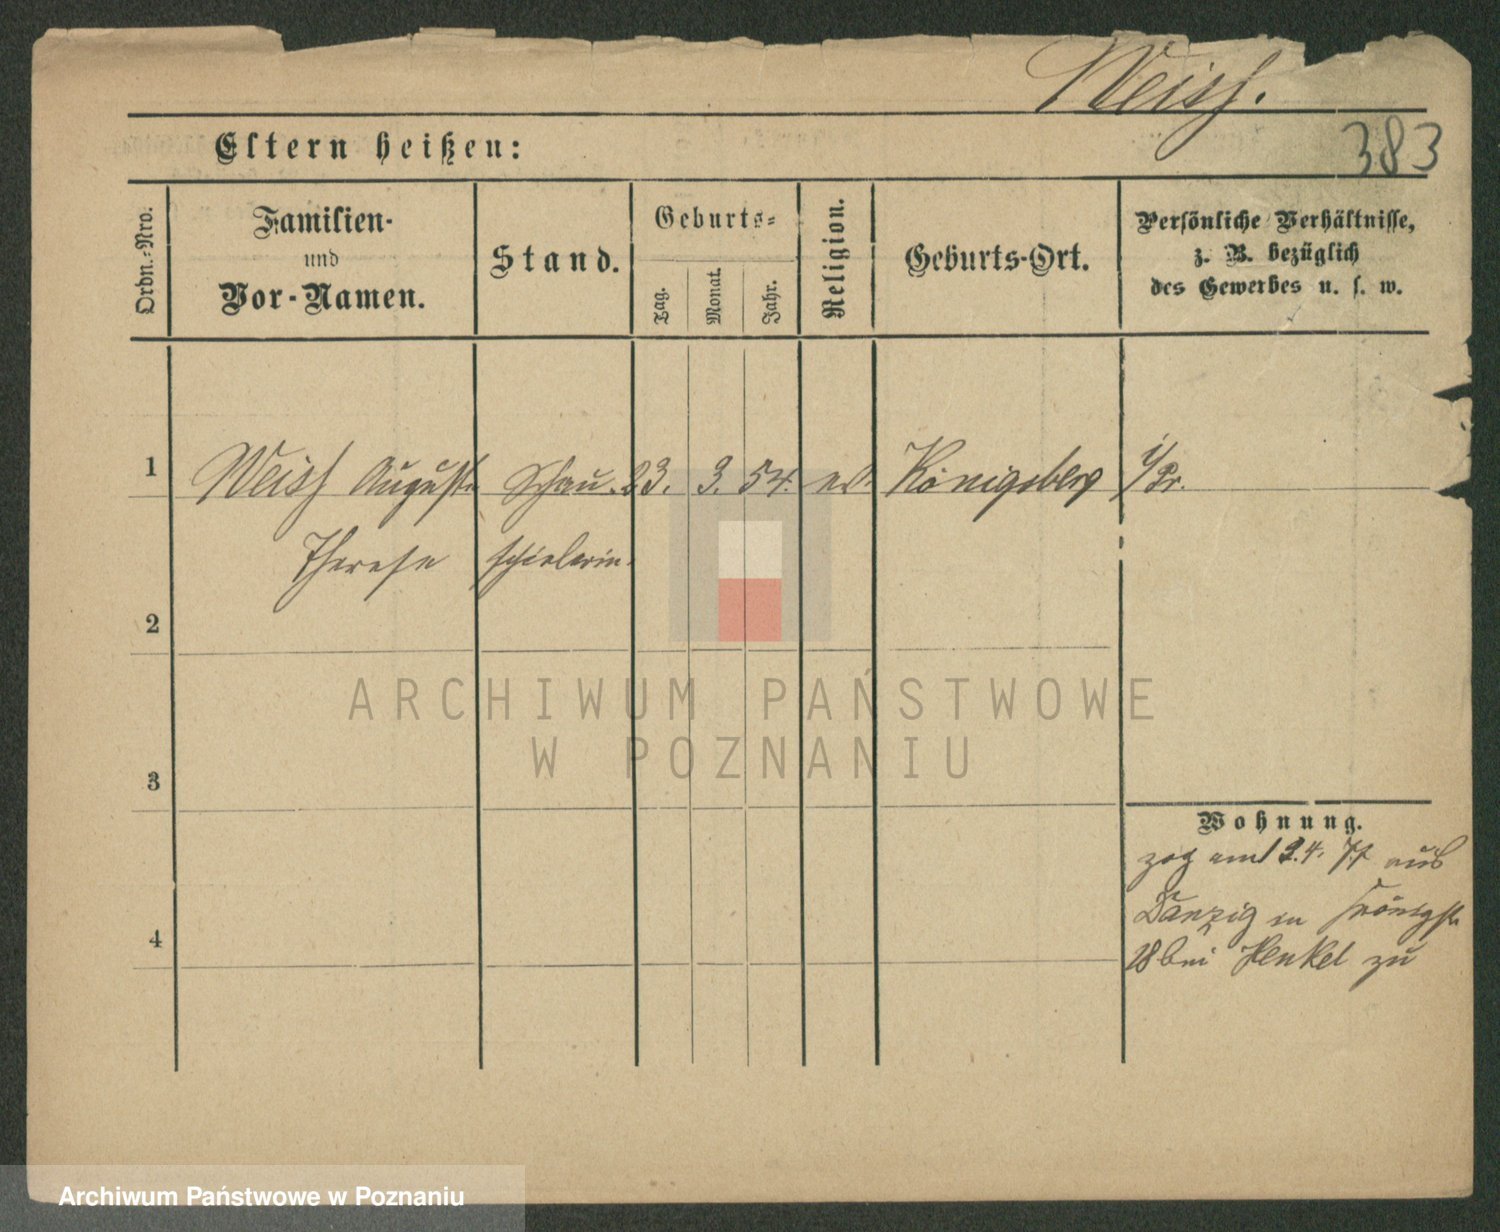 Weiss.
Eltern heißen:
383
Ordn.-Nro.
Familien-
und
Vor-Namen.
Stand.
Geburts-
Tag.
Monat.
Jahr.
Religion.
Geburts-Ort.
Persönliche Verhältnisse,
z. B. bezüglich
des Gewerbes u. s. w.
1 Weiss Auguste Schau- 23. 3. 54. ev. Königsberg i/Pr.
Therese spielerin.
2
3
4
Wohnung.
zog am 3.4. 77 aus
Danzig in Königst.
18 bei Henkel zu
ARCHIWUM PAŃSTWOWE
W POZNANIU
Archiwum Państwowe w Poznaniu